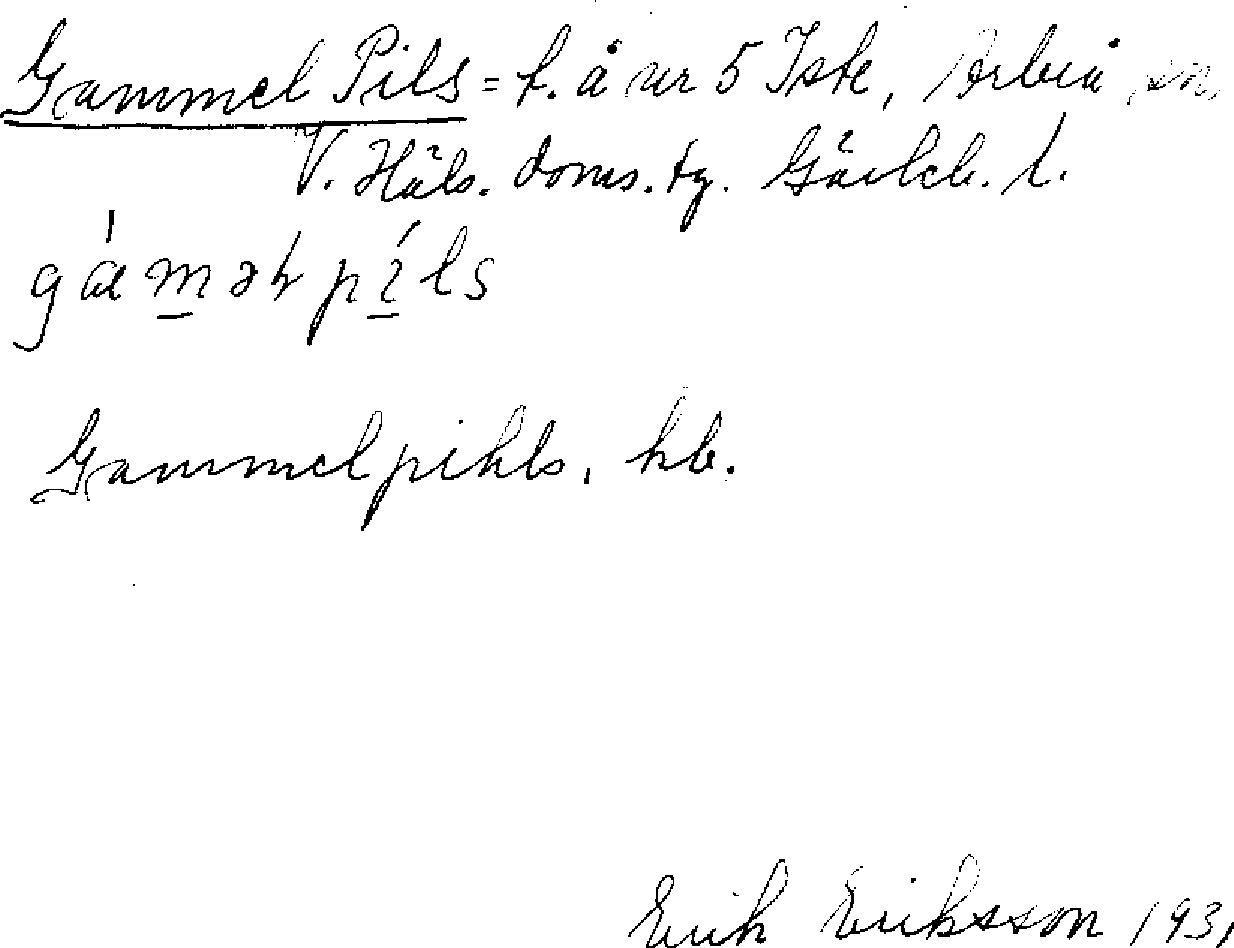 Gammel Pils = f. å nr 5 Iste, Arbrå sn,
V. Häls. doms. tg. Gävleb. l.
gámət píls
Gammelpihls, hb.
Erik Eriksson 1931